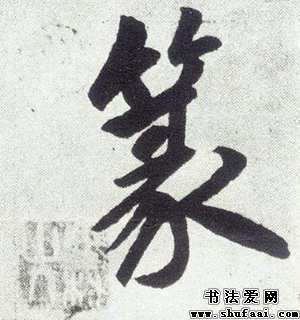 篆
书法爱网
www.shufaai.com